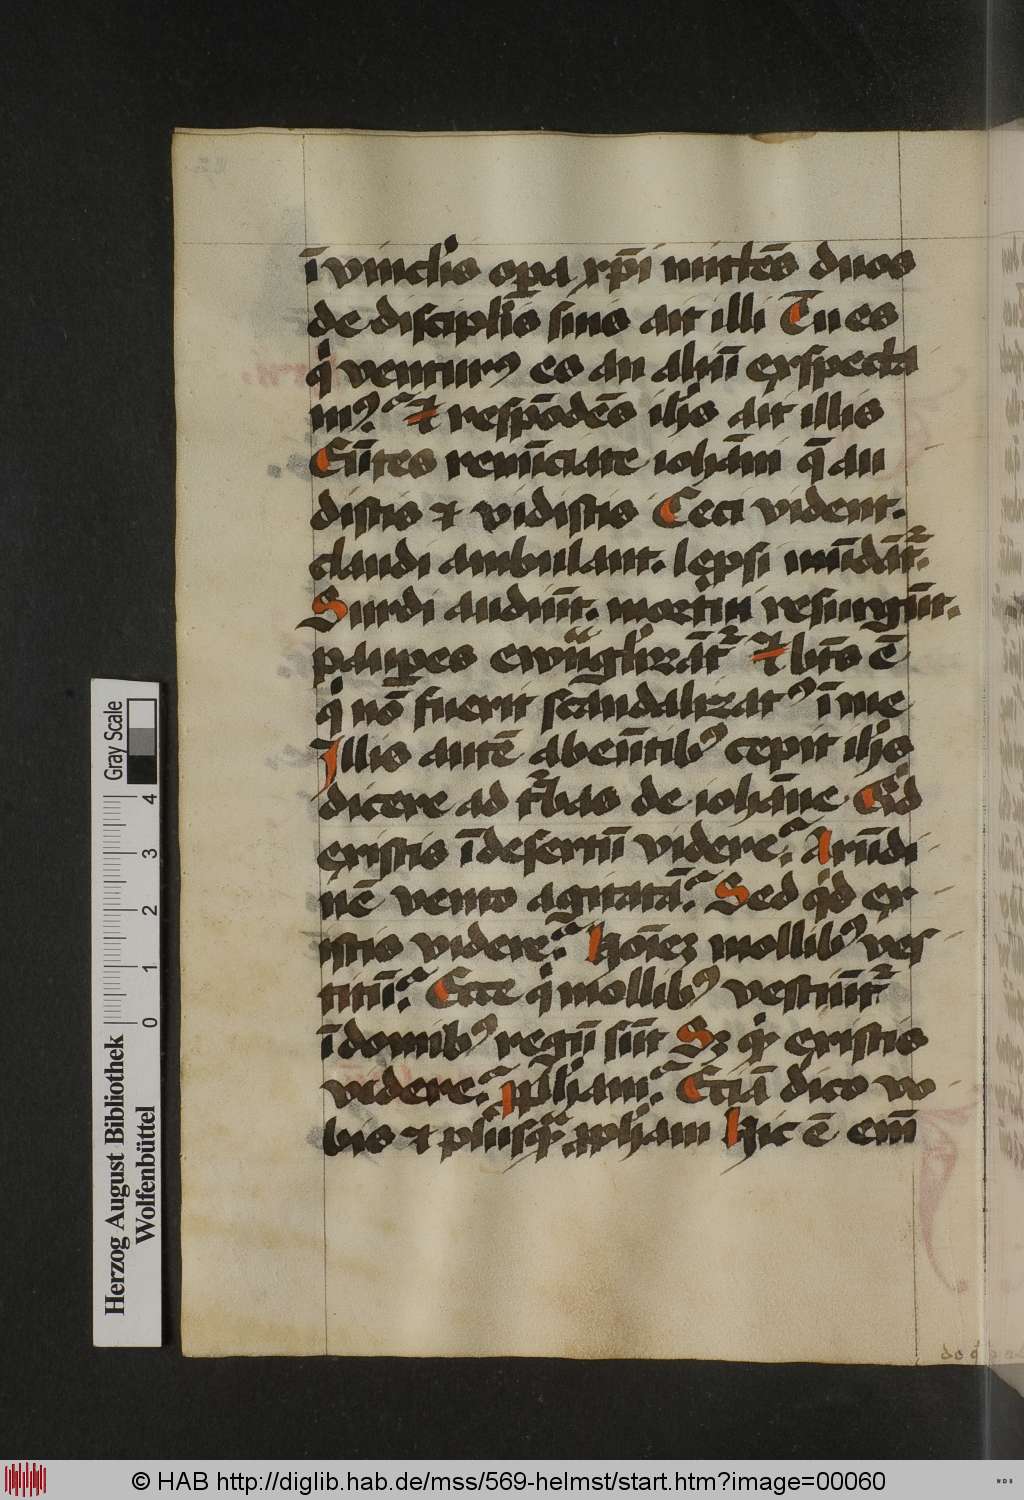 ī vinclis opa xp̄i mittēs duos
de disciplis suis ait illi Tu es
qͥ venturꝰ es an aliū exspecta
mꝰ? Et respōdēs ihs ait illis
Eūtes renūciate iohāni q̄ au
distis et vidistis Ceci vident.
claudi ambulant. lepsi mūdāt᷑.
Surdi audiūt. mortui resurgūt.
paupes ewāglizāt᷑ Et bt̄s ē
qͥ nō fuerit scandalizatꝰ ī me
Illis autē abeūtibꝰ cepit ihs
dicere ad t᷑bas de iohāne Qͥd
existis ī desertū videre? Arūdi
nē vento agitatā? Sed qͥd ex
istis videre? Hoīez mollibꝰ ves
titū? Ecce qͥ mollibꝰ vestiūt᷑
ī domibꝰ regū sūt Sz existis
videre? pͥham? Etiā dico vo
bis et plusqͣ ꝓpham Hic ē em̄
Gray Scale
4
3
2
1
0
Herzog August Bibliothek
Wolfenbüttel
© HAB http://diglib.hab.de/mss/569-helmst/start.htm?image=00060